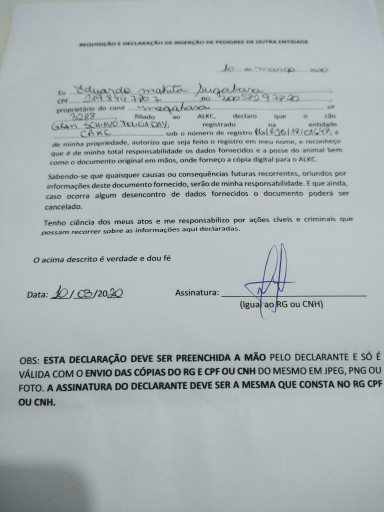 REQUISIÇÃO E DECLARAÇÃO DE INSERÇÃO DE PEDIGREE DE OUTRA ENTIDADE
10 de março
Eu Eduardo
CPF RG
proprietário do canil nº
3288 filiado ao ALKC, declaro que o cão
registrado na entidade
CAKC sob o número de registro é
de minha propriedade, autorizo que seja feito o registro em meu nome, e reconheço
que é de minha total responsabilidade os dados fornecidos e a posse do animal bem
como o documento original em mãos, onde forneço a cópia digital para o ALKC.
Sabendo-se que quaisquer causas ou consequências futuras recorrentes, oriundos por
informações deste documento fornecido, serão de minha responsabilidade. E que ainda,
caso ocorra algum desencontro de dados fornecidos o documento poderá ser
cancelado.
Tenho ciência dos meus atos e me responsabilizo por ações cíveis e criminais que
possam recorrer sobre as informações aqui declaradas.
O acima descrito é verdade e dou fé
Data: 10/03/2020 Assinatura:
(Igual ao RG ou CNH)
OBS: ESTA DECLARAÇÃO DEVE SER PREENCHIDA A MÃO PELO DECLARANTE E SÓ É
VÁLIDA COM O ENVIO DAS CÓPIAS DO RG E CPF OU CNH DO MESMO EM JPEG, PNG OU
FOTO. A ASSINATURA DO DECLARANTE DEVE SER A MESMA QUE CONSTA NO RG CPF
OU CNH.